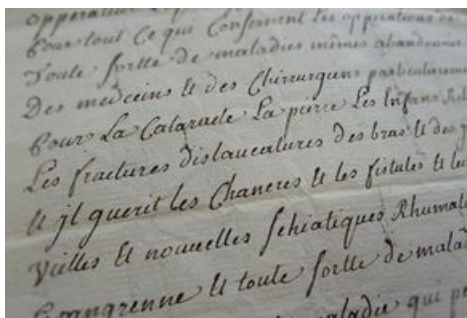 opperateur
Pour tout Ce qui Conservent les opperations de
Toute sortte de maladies mêmes abandonnez
Des medecins & des Chirurgiens particulierem
Pour La Cataracte La pierre Les Enfans
Les fractures dislaucatures des bras & des
& jl guerit les Chancres & les fistules &
Vielles & nouvelles schiatiques Rhumati
Grangrenne & toute sortte de malad
maladie qui pe